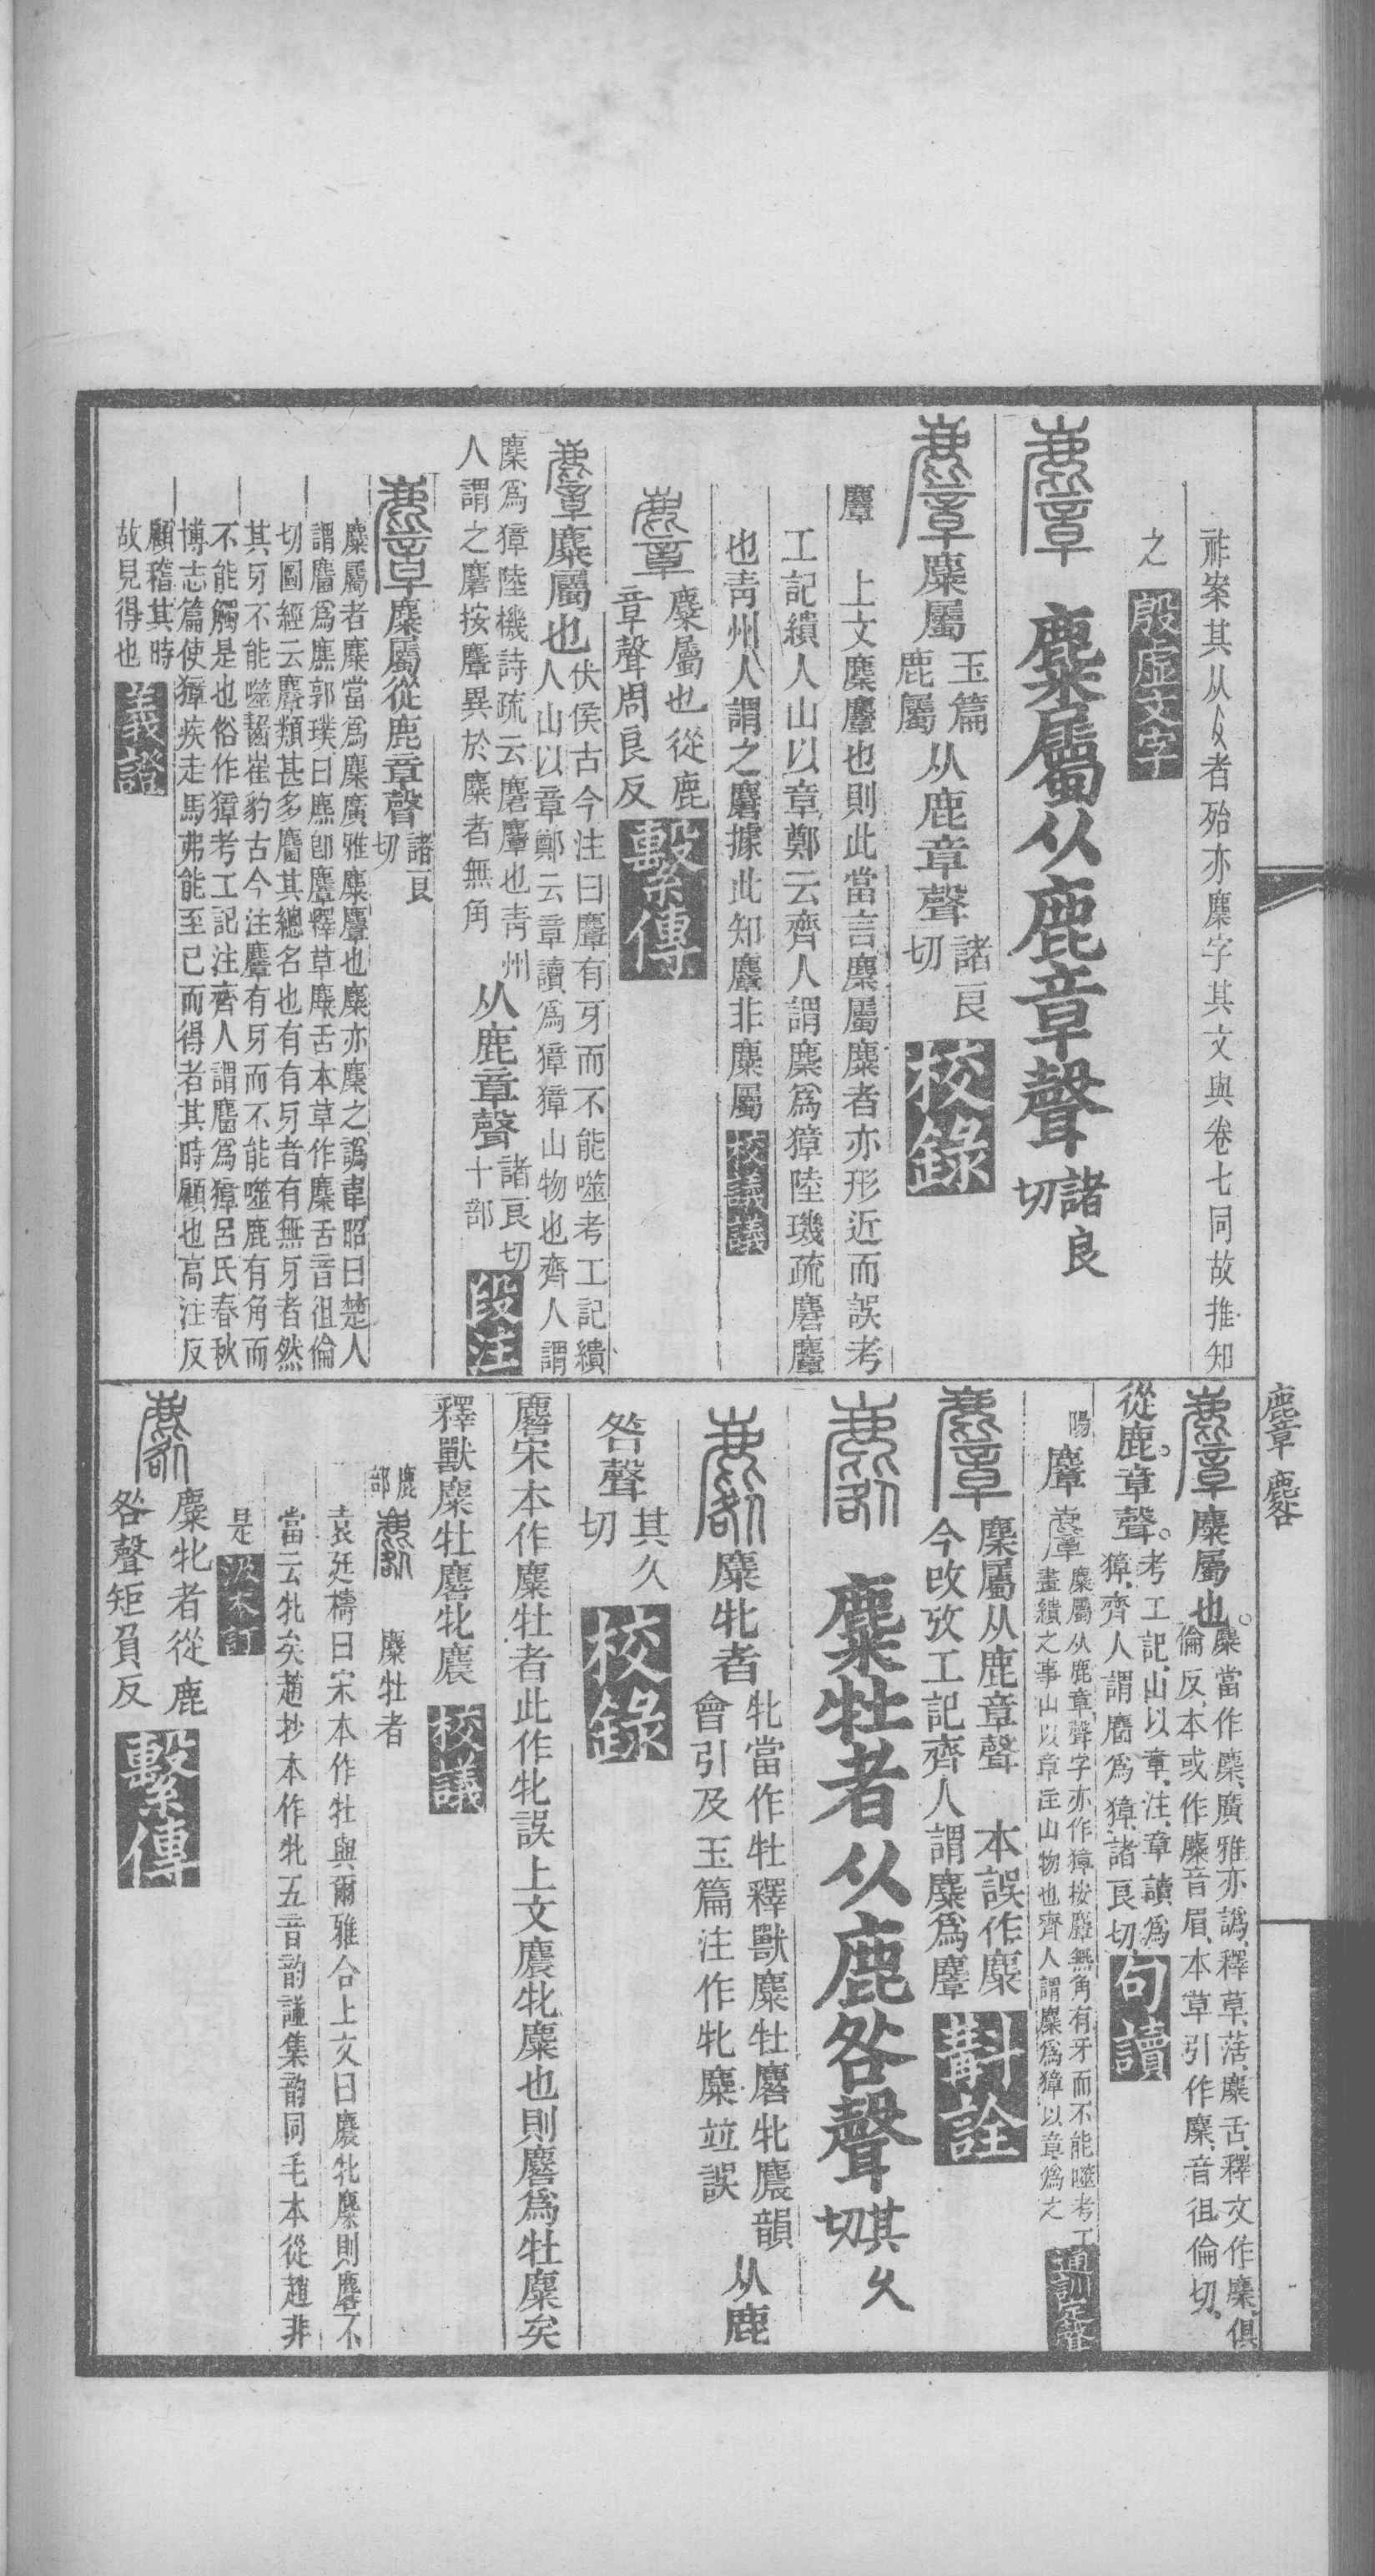 祚案其从㐅者殆亦麋字其文與卷七同故推知
之 殷虛文字
麞 麋屬从鹿章聲諸良切
麞麋屬玉篇鹿屬从鹿章聲諸良切 校錄
麞 上文麋麞也則此當言麋屬麋者亦形近而誤考
工記繢人山以章鄭云齊人謂麋爲獐陸璣疏麏麞
也靑州人謂之麏據此知麞非麋屬 校議議
麞 麋屬也從鹿
章聲周良反 繫傳
麞麋屬也伏侯古今注曰麞有牙而不能噬考工記繢
人山以章鄭云章讀爲獐獐山物也齊人謂
麋爲獐陸機詩疏云麏麞也靑州
人謂之麏按麞異於麋者無角 从鹿章聲諸良切十部 段注
麞麋屬從鹿章聲諸良切
麋屬者麋當爲麇廣雅麋麞也麋亦麇之譌韋昭曰楚人
謂麕爲麃郭璞曰麃卽麞釋草麋舌本草作麇舌音俎倫
切圖經云麞類甚多麕其總名也有有牙者有無牙者然
其牙不能噬齧崔豹古今注麞有牙而不能噬鹿有角而
不能觸是也俗作獐考工記注齊人謂麕爲獐呂氏春秋
博志篇使獐疾走馬弗能至已而得者其時顧也高注反
顧稽其時
故見得也 義證
麞 麔
麞麋屬也。麋當作麇、廣雅亦譌、釋草、萿、麋舌、釋文作麇、俱
倫反、本或作麋、音眉、本草引作麇、音俎倫切。
從鹿。章聲。考工記、山以章、注、章讀爲
獐、齊人謂麕爲獐、諸良切 句讀
陽 麞 麞 麋屬从鹿章聲字亦作獐按麞無角有牙而不能噬考工
畫繢之事山以章注山物也齊人謂麋爲獐以章爲之 通訓定聲
麞 麇屬从鹿章聲 本誤作麋
今改攷工記齊人謂麇爲麞 斠詮
麔 麋牡者从鹿咎聲其久切
麔麋牝者牝當作牡釋獸麋牡麔牝麎韻
會引及玉篇注作牝麋竝誤 从鹿
咎聲其久切 校錄
麔宋本作麋牡者此作牝誤上文麎牝麋也則麔爲牡麋矣
釋獸麋牡麔牝麎 校議
鹿部 麔 麋牡者
袁廷檮曰宋本作牡與爾雅合上文曰麎牝麋則麔不
當云牝矣趙抄本作牝五音韵譜集韵同毛本從趙非
是 汲本訂
麔 麋牝者從鹿
咎聲矩負反 繫傳